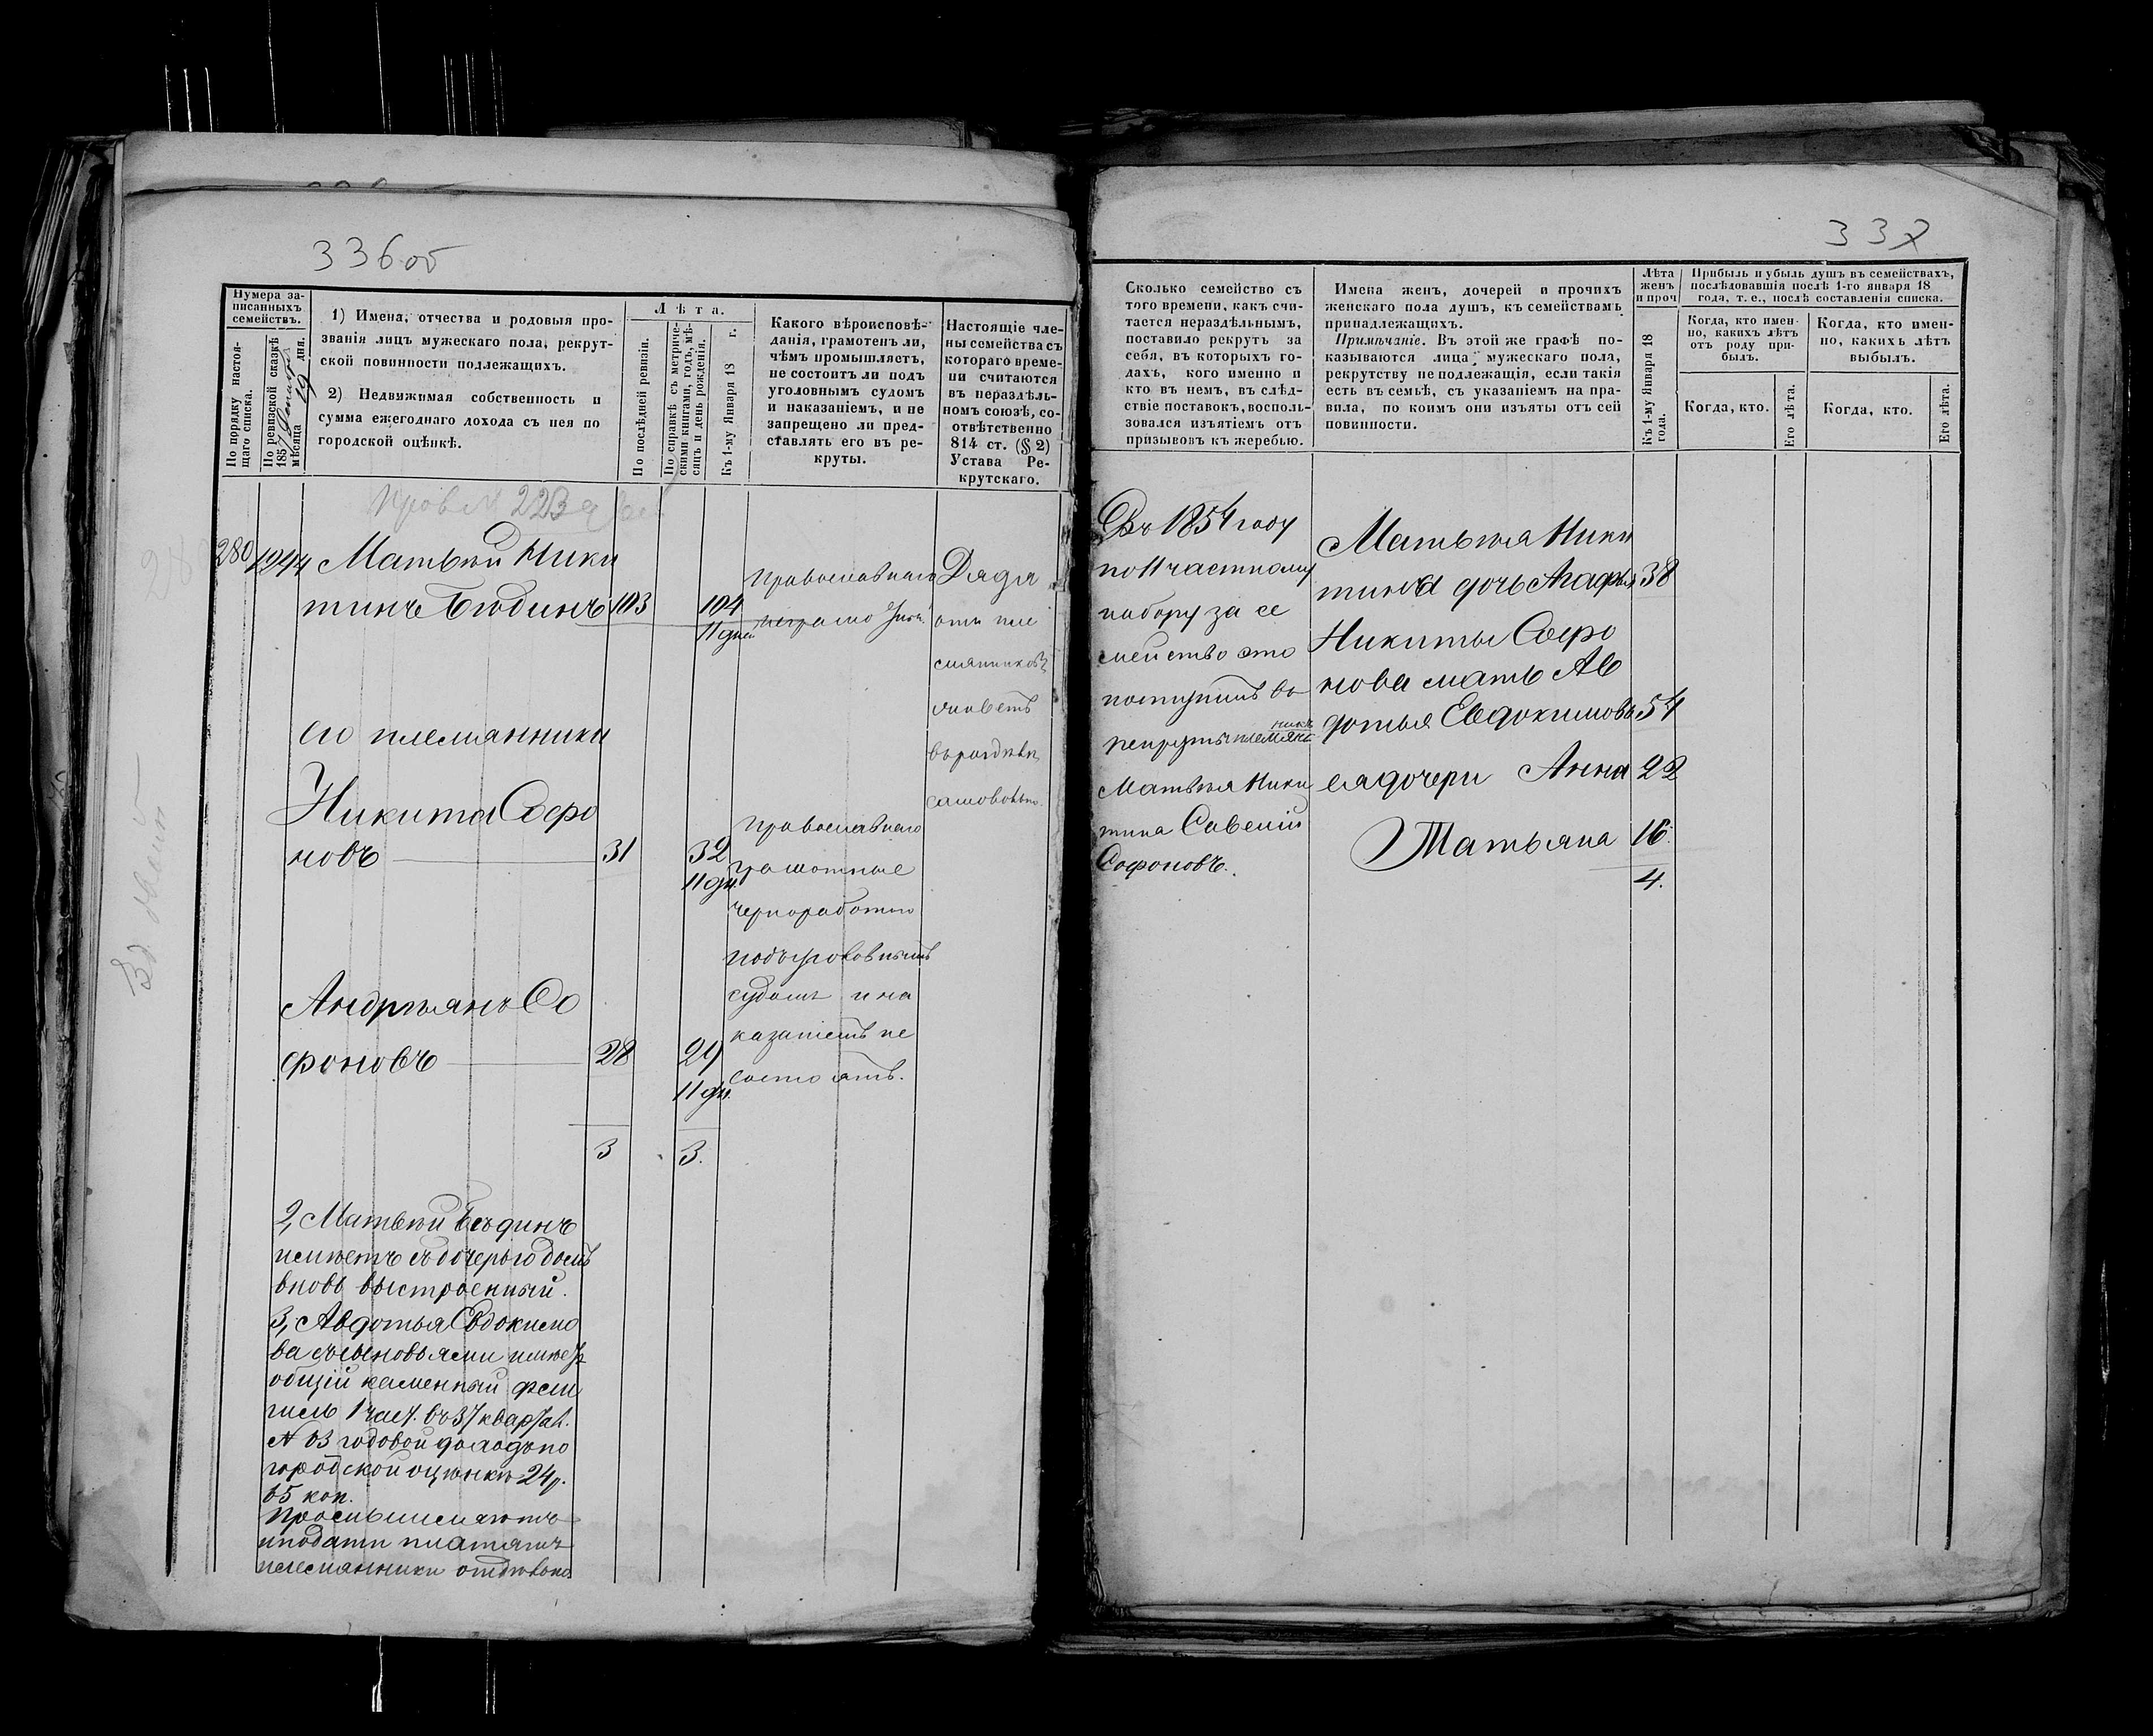 336 об
Нумера за-
писанныхъ
семействъ.
По порядку настоя-
щаго списка.
По ревизской сказкѣ
185
мѣсяца 19 дня.
1) Имена, отчества и родовыя про-
званія лицъ мужескаго пола, рекрут-
ской повинности подлежащихъ.
2) Недвижимая собственность и
сумма ежегоднаго дохода съ нея по
городской оцѣнкѣ.
Лѣта.
По послѣдней ревизіи.
По справкѣ съ метриче-
скими книгами, годъ, мѣ-
сяцъ и день рожденія.
Къ 1-му Января 18 г.
Какого вѣроисповѣ-
данія, грамотенъ ли,
чѣмъ промышляетъ,
не состоитъ ли подъ
уголовнымъ судомъ
и наказаніемъ, и не
запрещено ли пред-
ставлять его въ ре-
круты.
Настоящіе чле-
ны семейства съ
котораго време-
ни считаются
въ нераздѣль-
номъ союзѣ, со-
отвѣтственно
814 ст. (§ 2)
Устава Ре-
крутскаго.
280 1244 Матвѣй Ники
тинъ Бюдинъ 103 104
11 дней
Православнаго
Дядя
отъ пле
смянниковъ
живетъ
въ раздѣлѣ
самовольно.
его племянники
Никита Софро
новъ 31 32
11 дн.
Православнаго
грамотные
чернорабочіе
подъ уголовнымъ
судомъ и на
казаніемъ не
состоятъ.
Андреянъ Со
фоновъ 28 29
11 дн.
3 3.
2, Матвѣй Бюдинъ
имѣетъ съ дочерью домъ
вновь выстроенный.
3, Авдотья Евдокимо
ва съ сыновьями имѣетъ
общій каменный фли
гель 1 част. въ 37 кварталѣ
N 63 годовой доходъ по
городской оцѣнкѣ 24 р.
65 коп.
и подати платятъ
племянники отдѣльно
337
Сколько семейство съ
того времени, какъ счи-
тается нераздѣльнымъ,
поставило рекрутъ за
себя, въ которыхъ го-
дахъ, кого именно и
кто въ немъ, въ слѣд-
ствіе поставокъ, восполь-
зовался изъятіемъ отъ
призывовъ къ жеребью.
Имена женъ, дочерей и прочихъ
женскаго пола душъ, къ семействамъ
принадлежащихъ.
Примѣчаніе. Въ этой же графѣ по-
казываются лица мужескаго пола,
рекрутству не подлежащія, если такія
есть въ семьѣ, съ указаніемъ на пра-
вила, по коимъ они изъяты отъ сей
повинности.
Лѣта
женъ
и проч
Къ 1-му Января 18
года.
Прибыль и убыль душъ въ семействахъ,
послѣдовавшія послѣ 1-го января 18
года, т. е., послѣ составленія списка.
Когда, кто имен-
но, какихъ лѣтъ
отъ роду при-
былъ.
Когда, кто имен-
но, какихъ лѣтъ
выбылъ.
Когда, кто.
Его лѣта.
Когда, кто.
Его лѣта.
Въ 1854 году
по 11 частному
набору за се
мейство это
поступилъ въ
рекруты племян
никъ
Матвѣя Ники
тина Савелій
Софоновъ.
Матвѣя Ники
тина дочь Агафья 38
Никиты Софро
нова мать Ав
дотья Евдокимовъ 54
ея дочери Анна 22
Татьяна 16.
4.